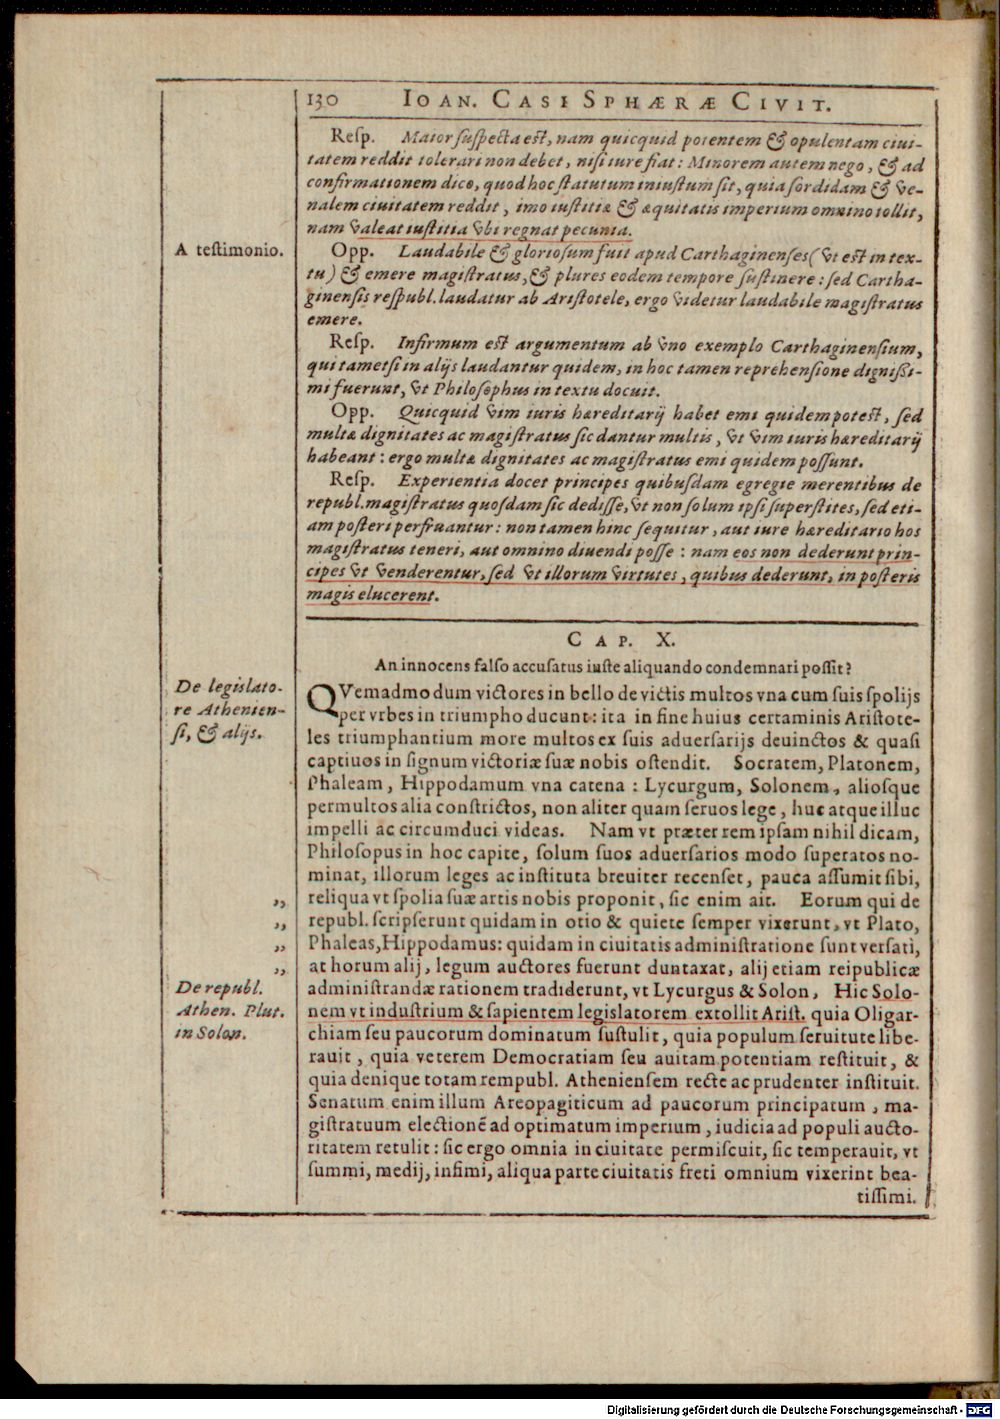 130 IOAN. CASI SPHÆRÆ CIVIT.
Reſp. Maior ſuſpecta est, nam quicquid potentem & opulentam ciui-
tatem reddit tolerari non debet, niſi iure fiat: Minorem autem nego, & ad
confirmationem dico, quod hoc ſtatutum iniuſtum ſit, quia ſordidam & ve-
nalem ciuitatem reddit, imo iuſtitiæ & æquitatis imperium omnino tollit,
nam valeat iuſtitia vbi regnat pecunia.
A teſtimonio.
Opp. Laudabile & glorioſum fuit apud Carthaginenſes (vt est in tex-
tu) & emere magiſtratus, & plures eodem tempore ſuſtinere: ſed Cartha-
ginenſis reſpubl. laudatur ab Ariſtotele, ergo videtur laudabile magiſtratus
emere.
Reſp. Infirmum est argumentum ab vno exemplo Carthaginenſium,
qui tametſi in alijs laudantur quidem, in hoc tamen reprehenſione digniſſi-
mi fuerunt, vt Philoſophus in textu docuit.
Opp. Quicquid vim iuris hæreditarij habet emi quidem potest, ſed
multæ dignitates ac magiſtratus ſic dantur multis, vt vim iuris hæreditarij
habeant: ergo multæ dignitates ac magiſtratus emi quidem poſſunt.
Reſp. Experientia docet principes quibuſdam egregie merentibus de
republ. magiſtratus quoſdam ſic dediſſe, vt non ſolum ipſi ſuperſtites, ſed eti-
am poſteri perfruantur: non tamen hinc ſequitur, aut iure hæreditario hos
magiſtratus teneri, aut omnino diuendi poſſe: nam eos non dederunt prin-
cipes vt venderentur, ſed vt illorum virtutes, quibus dederunt, in poſteris
magis elucerent.
CAP. X.
An innocens falſo accuſatus iuſte aliquando condemnari poſſit?
De legislato-
re Athenien-
ſi, & alijs.
QVemadmodum victores in bello de victis multos vna cum ſuis ſpolijs
per vrbes in triumpho ducunt: ita in fine huius certaminis Ariſtote-
les triumphantium more multos ex ſuis aduerſarijs deuinctos & quaſi
captiuos in ſignum victoriæ ſuæ nobis oſtendit. Socratem, Platonem,
Phaleam, Hippodamum vna catena: Lycurgum, Solonem, alioſque
permultos alia conſtrictos, non aliter quam ſeruos lege, huc atque illuc
impelli ac circumduci videas. Nam vt præter rem ipſam nihil dicam,
Philoſopus in hoc capite, ſolum ſuos aduerſarios modo ſuperatos no-
minat, illorum leges ac inſtituta breuiter recenſet, pauca aſſumit ſibi,
,, reliqua vt ſpolia ſuæ artis nobis proponit, ſic enim ait. Eorum qui de
,, republ. ſcripſerunt quidam in otio & quiete ſemper vixerunt, vt Plato,
,, Phaleas, Hippodamus: quidam in ciuitatis adminiſtratione ſunt verſati,
,, at horum alij, legum auctores fuerunt duntaxat, alij etiam reipublicæ
De republ.
Athen. Plut.
in Solon.
adminiſtrandæ rationem tradiderunt, vt Lycurgus & Solon, Hic Solo-
nem vt induſtrium & ſapientem legislatorem extollit Ariſt. quia Oligar-
chiam ſeu paucorum dominatum ſuſtulit, quia populum ſeruitute libe-
rauit, quia veterem Democratiam ſeu auitam potentiam reſtituit, &
quia denique totam rempubl. Athenienſem recte ac prudenter inſtituit.
Senatum enim illum Areopagiticum ad paucorum principatum, ma-
giſtratuum electionẽ ad optimatum imperium, iudicia ad populi aucto-
ritatem retulit: ſic ergo omnia in ciuitate permiſcuit, ſic temperauit, vt
ſummi, medij, infimi, aliqua parte ciuitatis freti omnium vixerint bea-
tiſſimi.
Digitalisierung gefördert durch die Deutsche Forschungsgemeinschaft - DFG